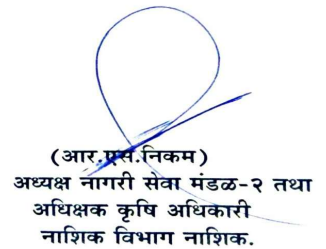 (आर.एस.निकम)
अध्यक्ष नागरी सेवा मंडळ-२ तथा
अधिक्षक कृषि अधिकारी
नाशिक विभाग नाशिक.